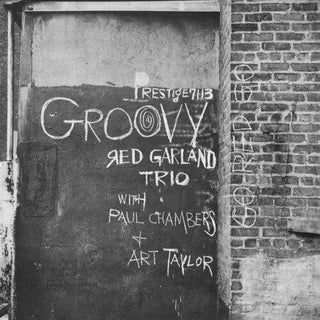 PRESTIGE 7113
GROOVY
RED GARLAND
TRIO
WITH
PAUL CHAMBERS
+
ART TAYLOR
GO RED GO